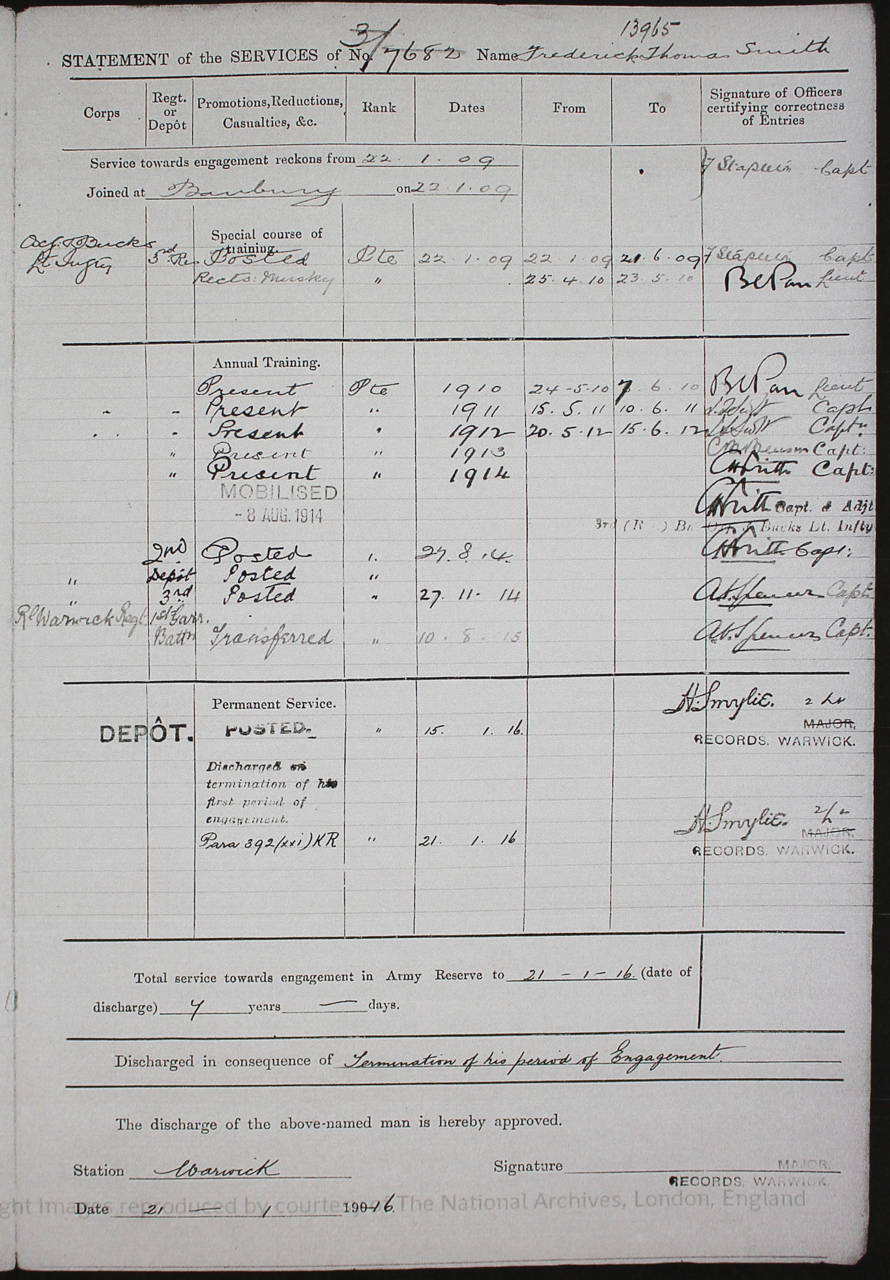 13965
STATEMENT of the SERVICES of No. 3/7682 Name Frederick Thomas Smith
Corps
Regt. or Depôt
Promotions, Reductions, Casualties, &c.
Rank
Dates
From
To
Signature of Officers certifying correctness of Entries
Service towards engagement reckons from 22 . 1 . 09 Capt
Joined at Banbury on 22.1.09
Special course of training.
Oxf. & Bucks Lt. Infty 3rd Res Posted Pte 22 . 1 . 09 22 . 1 . 09 21 . 6 . 09 Capt
Rects: Musky " 25 . 4 . 10 23 . 5 . 10 Lieut
Annual Training.
Present Pte 1910 24 - 5 - 10 7 . 6 . 10 Lieut
" " Present " 1911 15 . 5 . 11 10 . 6 . 11 Capt
" " Present " 1912 20 . 5 . 12 15 . 6 . 12 Captn
" Present " 1913 Capt:
" Present " 1914 Capt:
MOBILISED
- 8 AUG. 1914
Capt. & Adjt
3rd (R ) Bn Oxf & Bucks Lt. Infty
2nd Posted " 27 . 8 . 14 . Capt:
" Depôt Posted "
" 3rd Posted " 27 . 11 - 14 A. Spencer Capt.
Rl Warwick Regt 1st Garr. Battn Transferred " 10 . 8 . 15 A. Spencer Capt.
Permanent Service.
DEPÔT. POSTED. " 15 . 1 . 16 . H. Smylie. 2 Lt
MAJOR,
RECORDS. WARWICK.
Discharged on
termination of his
first period of
engagement.
Para 392 (xxi) KR " 21 . 1 . 16 H. Smylie. 2/Lt
MAJOR,
RECORDS. WARWICK.
Total service towards engagement in Army Reserve to 21 - 1 - 16 . (date of
discharge) 7 years — days.
Discharged in consequence of Termination of his period of Engagement.
The discharge of the above-named man is hereby approved.
Station Warwick Signature MAJOR,
RECORDS. WARWICK.
ght Images reproduced by courtesy of The National Archives, London, England
Date 21 — 1 190 16.